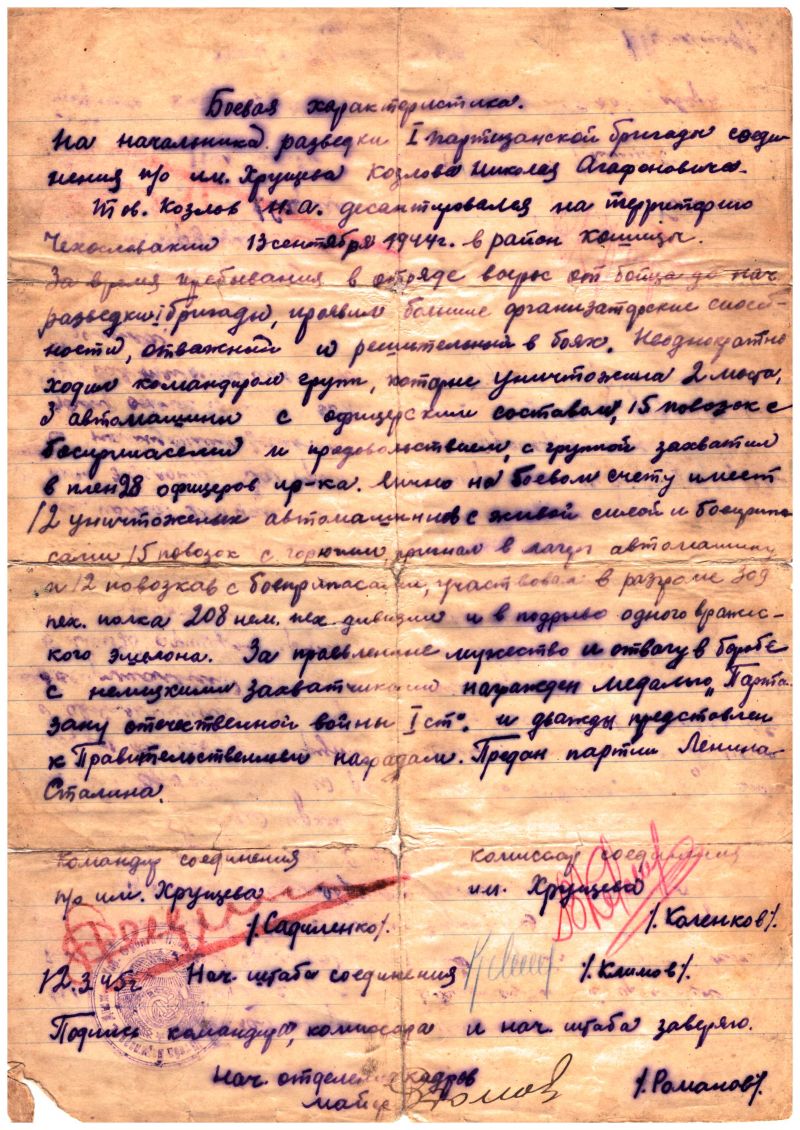 Боевая характеристика.
На начальника разведки I партизанской бригады соеди-
нения п/о им. Хрущева Козлова Николая Агафоновича.
Тов. Козлов Н.А. десантировался на территорию
Чехословакии 13 сентября 1944г. в район
За время пребывания в отряде вырос от бойца до нач
разведки I бригады, проявил большие организаторские способ-
ности, отважный и решительный в боях. Неоднократно
ходил командиром групп, которые уничтожила 2 моста,
3 автомашины с офицерским составом, 15 повозок с
боеприпасами и продовольствием, с группой захватил
в плен 28 офицеров пр-ка. Лично на боевом счету имеет
12 уничтоженых автомашинов с живой силой и боеприпа
сами 15 повозок с горючим, пригнал в лагерь автомашину
и 12 повозкав с боеприпасами, участвовал в разгроме 309
пех. полка 208 нем. пех. дивизии и в подрыве одного вражес-
кого эшелона. За проявление мужество и отвагу в борьбе
с немецкими захватчиками награжден медалью „Парти
зану отечественной войны I ст". и дважды представлен
к Правительственным наградам. Предан партии Ленина
Сталина.
Командир соединения комиссар соединения
п/о им. Хрущева им. Хрущева
/.Садиленко/. /.Каленков/.
12.3.45г Нач. штаба соединения /.Климов/.
Подпись командира, комиссара и нач. штаба заверяю.
Нач. отделения кадров
майор /.Романов/.